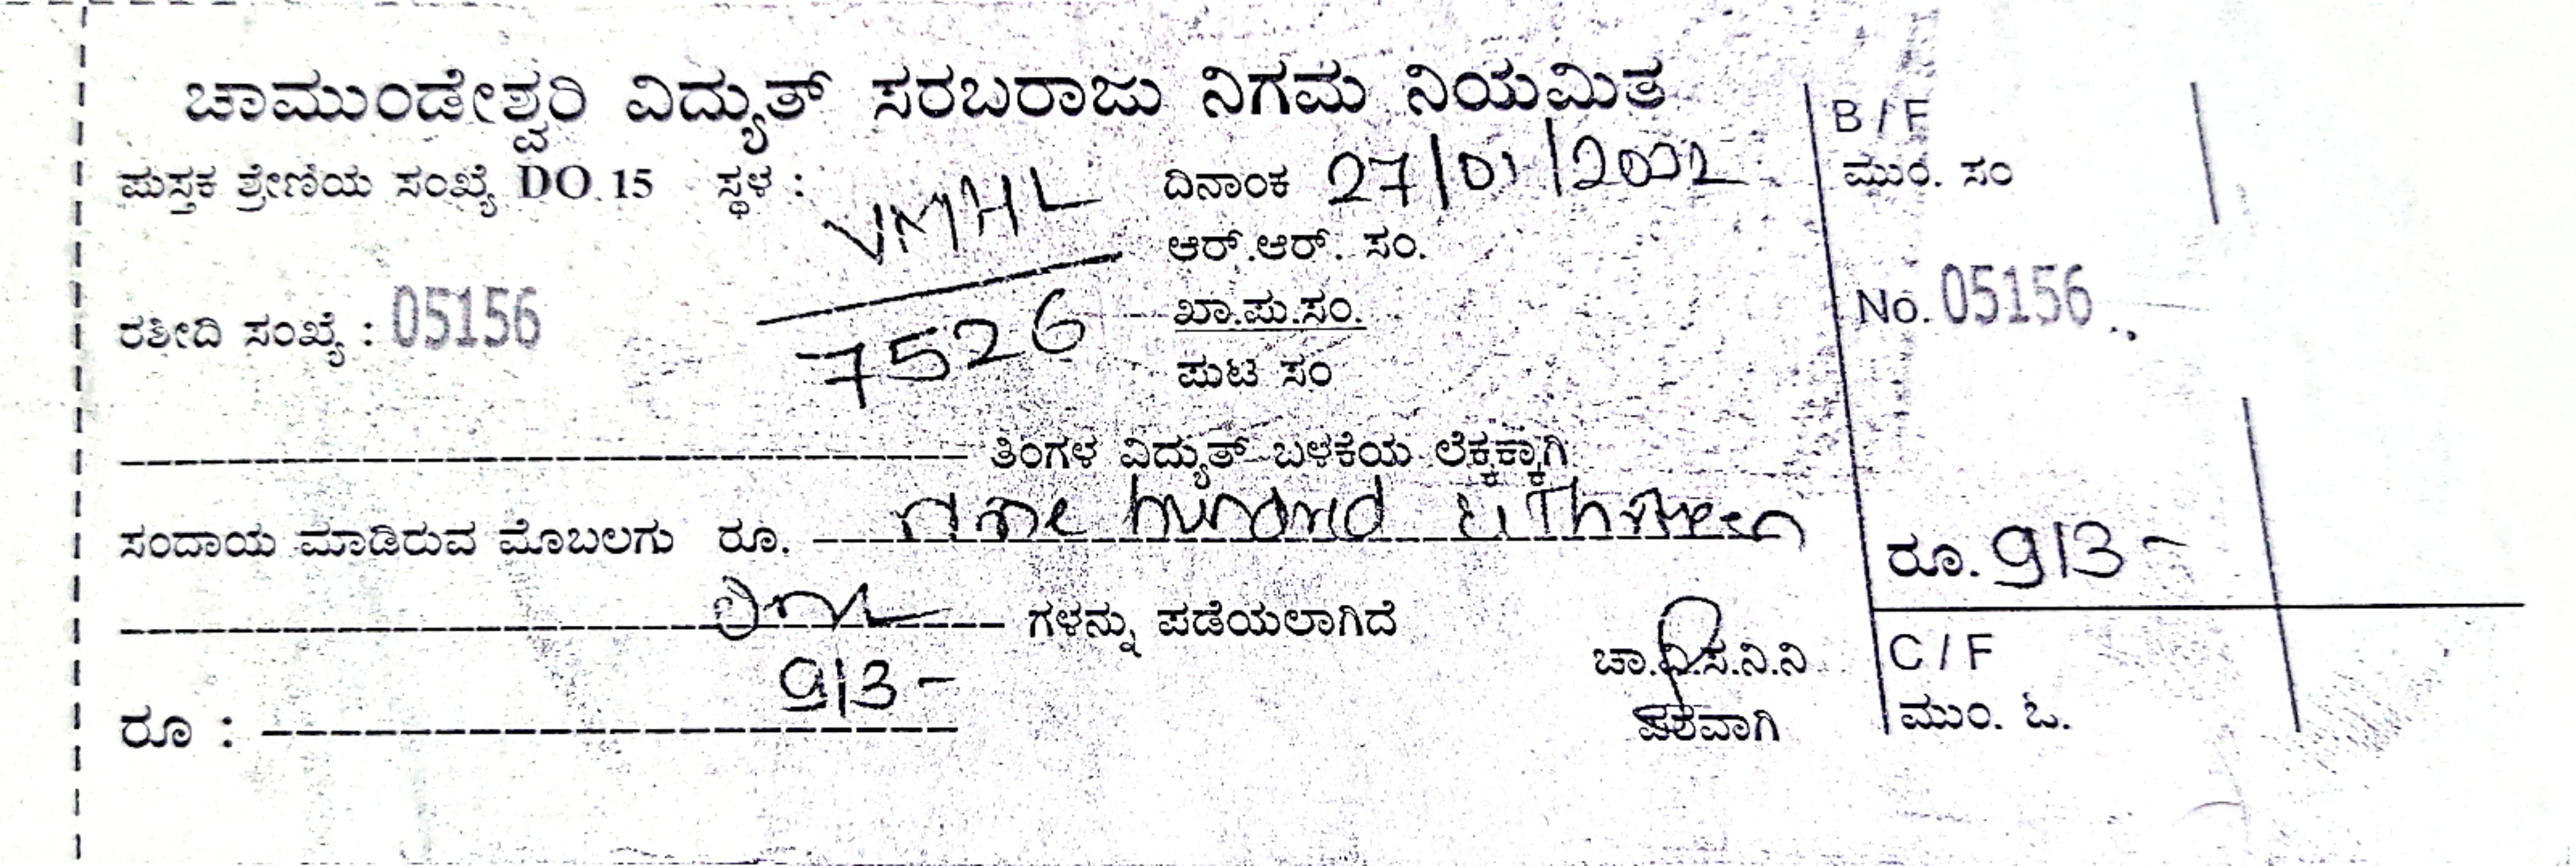 ಚಾಮುಂಡೇಶ್ವರಿ ವಿದ್ಯುತ್ ಸರಬರಾಜು ನಿಗಮ ನಿಯಮಿತ
B / F
ಪುಸ್ತಕ ಶ್ರೇಣಿಯ ಸಂಖ್ಯೆ DO. 15 ಸ್ಥಳ : VMHL ದಿನಾಂಕ 27/01/2002
ಮುಂ. ಸಂ
ಆರ್.ಆರ್. ಸಂ.
ರಶೀದಿ ಸಂಖ್ಯೆ : 05156 7526 ಖಾ.ಪು.ಸಂ.
No. 05156
ಪುಟ ಸಂ
ತಿಂಗಳ ವಿದ್ಯುತ್ ಬಳಕೆಯ ಲೆಕ್ಕಕ್ಕಾಗಿ
ಸಂದಾಯ ಮಾಡಿರುವ ಮೊಬಲಗು ರೂ. hundrd
ರೂ. 913 –
ಗಳನ್ನು ಪಡೆಯಲಾಗಿದೆ
ಚಾ.ವಿ.ಸ.ನಿ.ನಿ
C / F
ರೂ : 913 –
ಪರವಾಗಿ
ಮುಂ. ಓ.